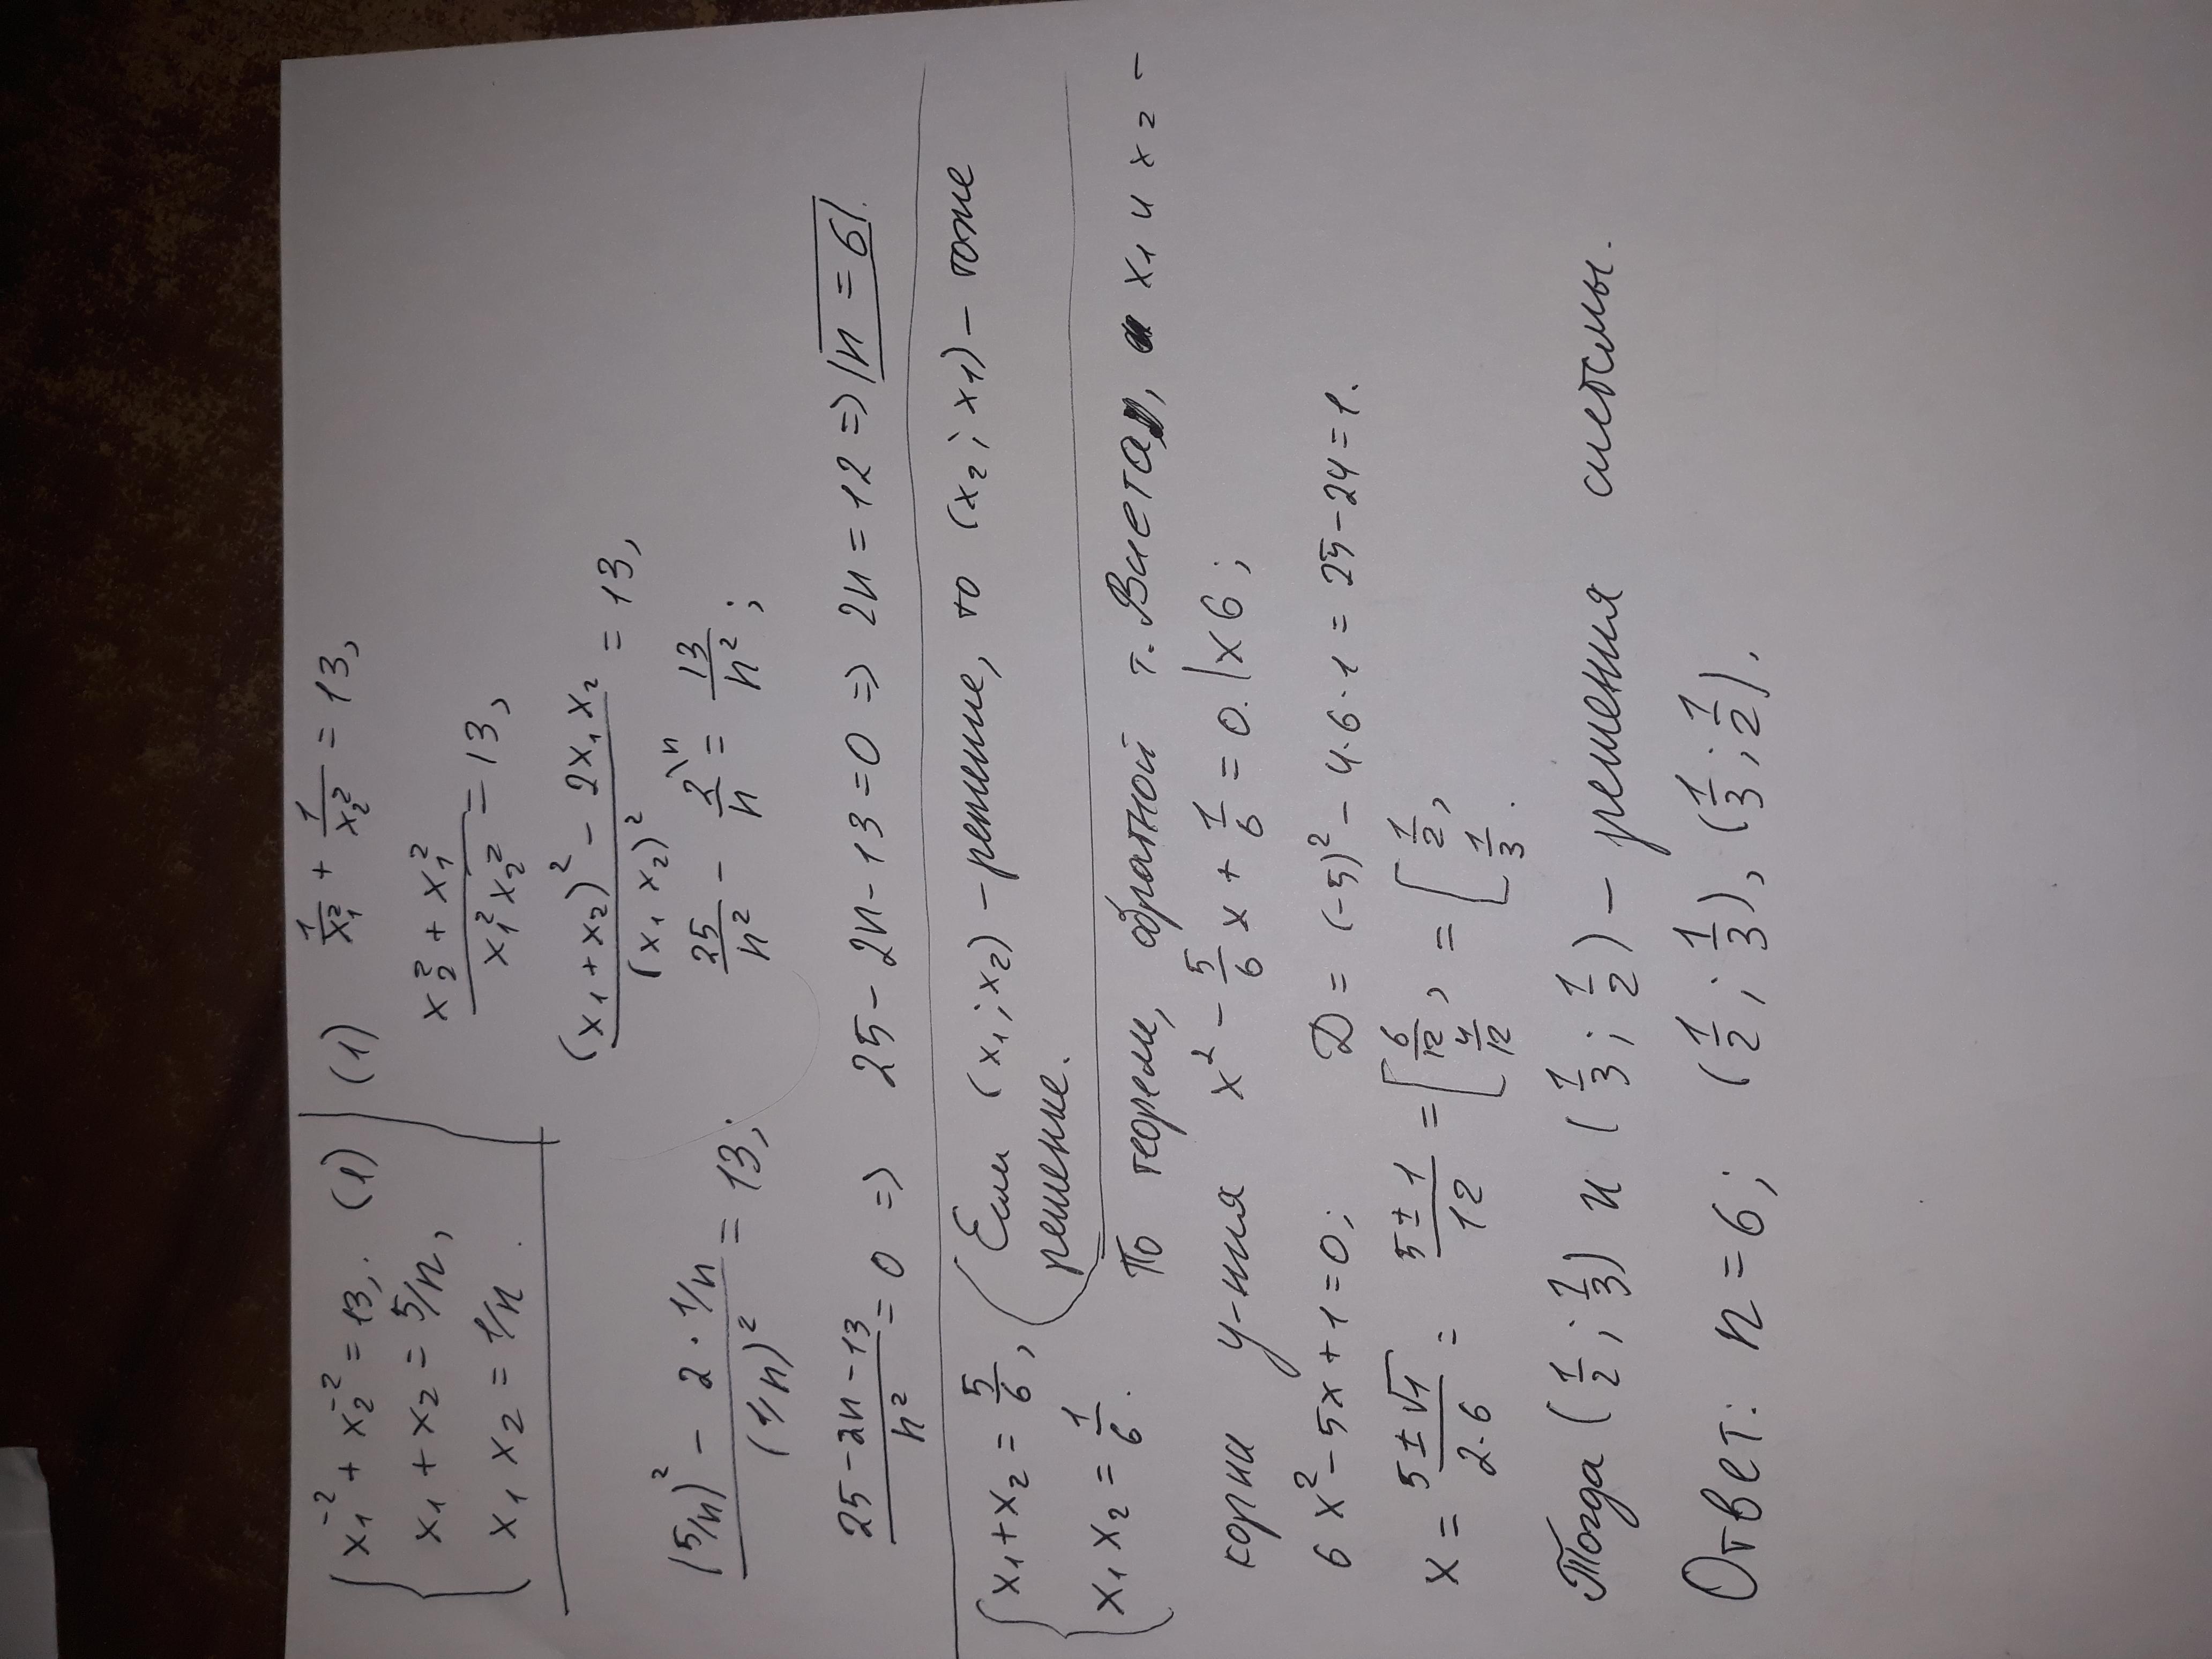 x₁⁻² + x₂⁻² = 13, (1)
x₁ + x₂ = 5/n,
x₁ x₂ = 1/n.
(1) 1/x₁² + 1/x₂² = 13,
(x₂² + x₁²)/(x₁² x₂²) = 13,
((x₁ + x₂)² - 2x₁x₂)/(x₁ x₂)² = 13,
((5/n)² - 2 · 1/n)/(1/n)² = 13; 25/n² - 2\n/n = 13/n²;
(25 - 2n - 13)/n² = 0 => 25 - 2n - 13 = 0 => 2n = 12 => |n = 6|.
{ x₁ + x₂ = 5/6, ( Если (x₁; x₂) - решение, то (x₂; x₁) - тоже
x₁ x₂ = 1/6. решение.
По теореме, обратной т. Виета, x₁ и x₂ -
корни у-ния x² - 5/6 x + 1/6 = 0. | x 6;
6x² - 5x + 1 = 0; D = (-5)² - 4·6·1 = 25 - 24 = 1.
x = (5 ± √1)/(2·6) = (5 ± 1)/12 = [ 6/12, 4/12 = [ 1/2, 1/3.
Тогда (1/2; 1/3) и (1/3; 1/2) - решения системы.
Ответ: n = 6; (1/2; 1/3), (1/3; 1/2).